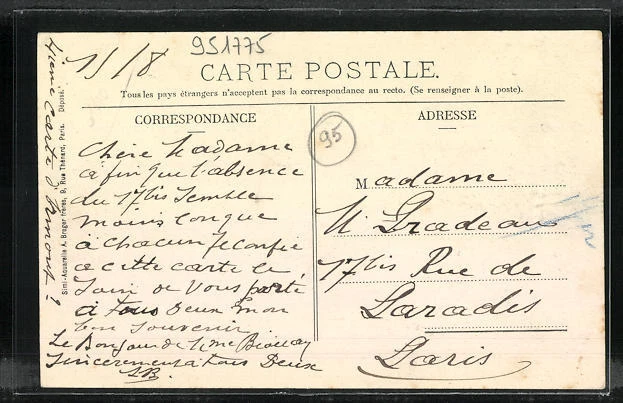 951775
15/8
CARTE POSTALE.
Tous les pays étrangers n'acceptent pas la correspondance au recto. (Se renseigner à la poste).
CORRESPONDANCE
Chère Madame
afin que l'absence
du 17bis semble
moins longue
à chacun je confie
a cette carte le
soin de vous porté
a tous deux mon
bon souvenir
Le Bonjour de Mme
sincerement a tous Deux
LB.
4ieme carte d'Ermont ?
Simi-Aquarelle A. Breger frères, 9, Rue Thénard, Paris. Déposé.
95
ADRESSE
Madame
M Pradeau
17bis Rue de
Paradis
Paris